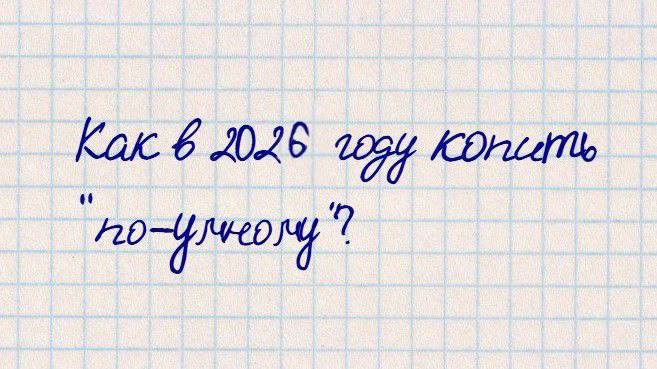 Как в 2026 году копить
"по-умному"?